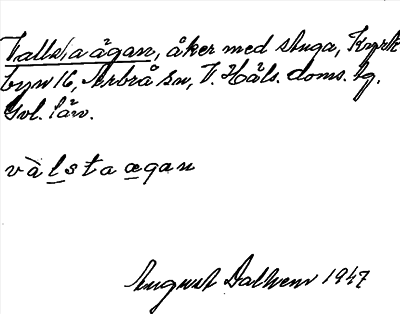 Vallsta ägan, åker med stuga, Kyrk
byn 16, Arbrå sn, V. Häls. doms. tg.
Gvl. län.
vàlsta ægan
August Dalhem 1947